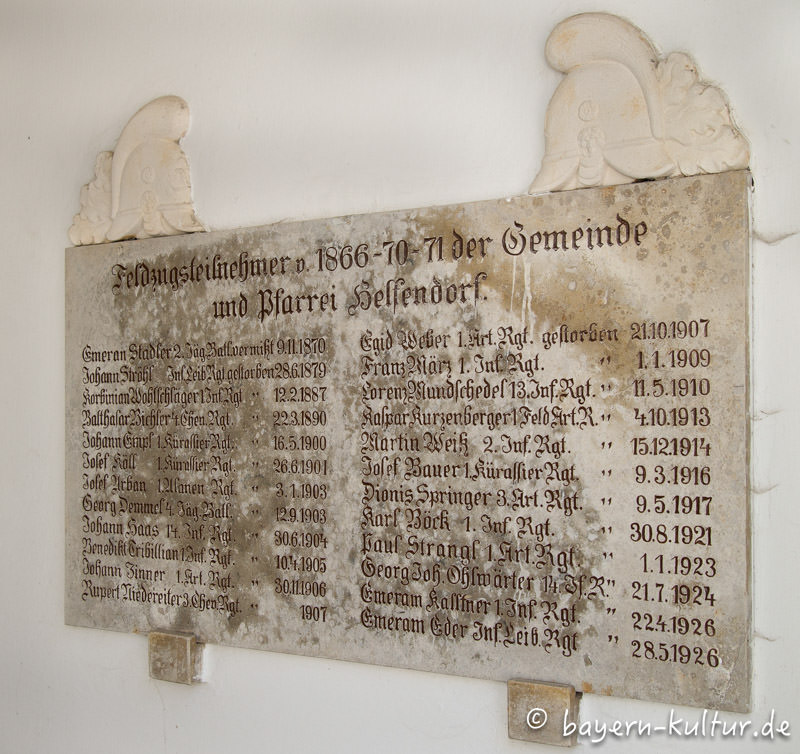 Feldzugsteilnehmer v. 1866-70-71 der Gemeinde
und Pfarrei Helfendorf.
Emeran Stadler 2. Jäg. Batl. vermißt 9.11.1870
Johann Ströhl Inf. Leib Rgt. gestorben 28.6.1879
Korbinian Wohlschläger 1. Inf. Rgt. " 12.2.1887
Balthasar Bichler 4. Chev. Rgt. " 22.3.1890
Johann Empl 1. Kürassier Rgt. " 16.5.1900
Josef Köll 1. Kürassier Rgt. " 26.6.1901
Josef Urban 1. Ulanen Rgt. " 3.1.1903
Georg Demmel 4. Jäg. Batl. " 12.9.1903
Johann Haas 14. Inf. Rgt. " 30.6.1904
Benedikt Tribillian 1. Inf. Rgt. " 10.4.1905
Johann Zinner 1. Art. Rgt. " 30.11.1906
Rupert Niedereiter 3. Chev. Rgt. " 1907
Egid Weber 1. Art. Rgt. gestorben 21.10.1907
Franz März 1. Inf. Rgt. " 1.1.1909
Lorenz Mundschedel 13. Inf. Rgt. " 11.5.1910
Kaspar Kurzenberger 1 Feld Art. R. " 4.10.1913
Martin Weiß 2. Inf. Rgt. " 15.12.1914
Josef Bauer 1. Kürassier Rgt. " 9.3.1916
Dionis Springer 3. Art. Rgt. " 9.5.1917
Karl Böck 1. Inf. Rgt. " 30.8.1921
Paul Strangl 1. Art. Rgt. " 1.1.1923
Georg Joh. Ohlwärter 14. Jf. R. " 21.7.1924
Emeram Kalttner 1. Inf. Rgt. " 22.4.1926
Emeram Eder Inf. Leib. Rgt " 28.5.1926
© bayern-kultur.de